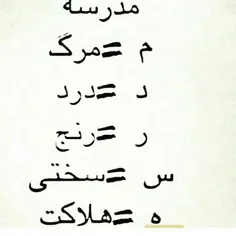 مدرسه
م = مرگ
د = درد
ر = رنج
س = سختی
ه = هلاکت